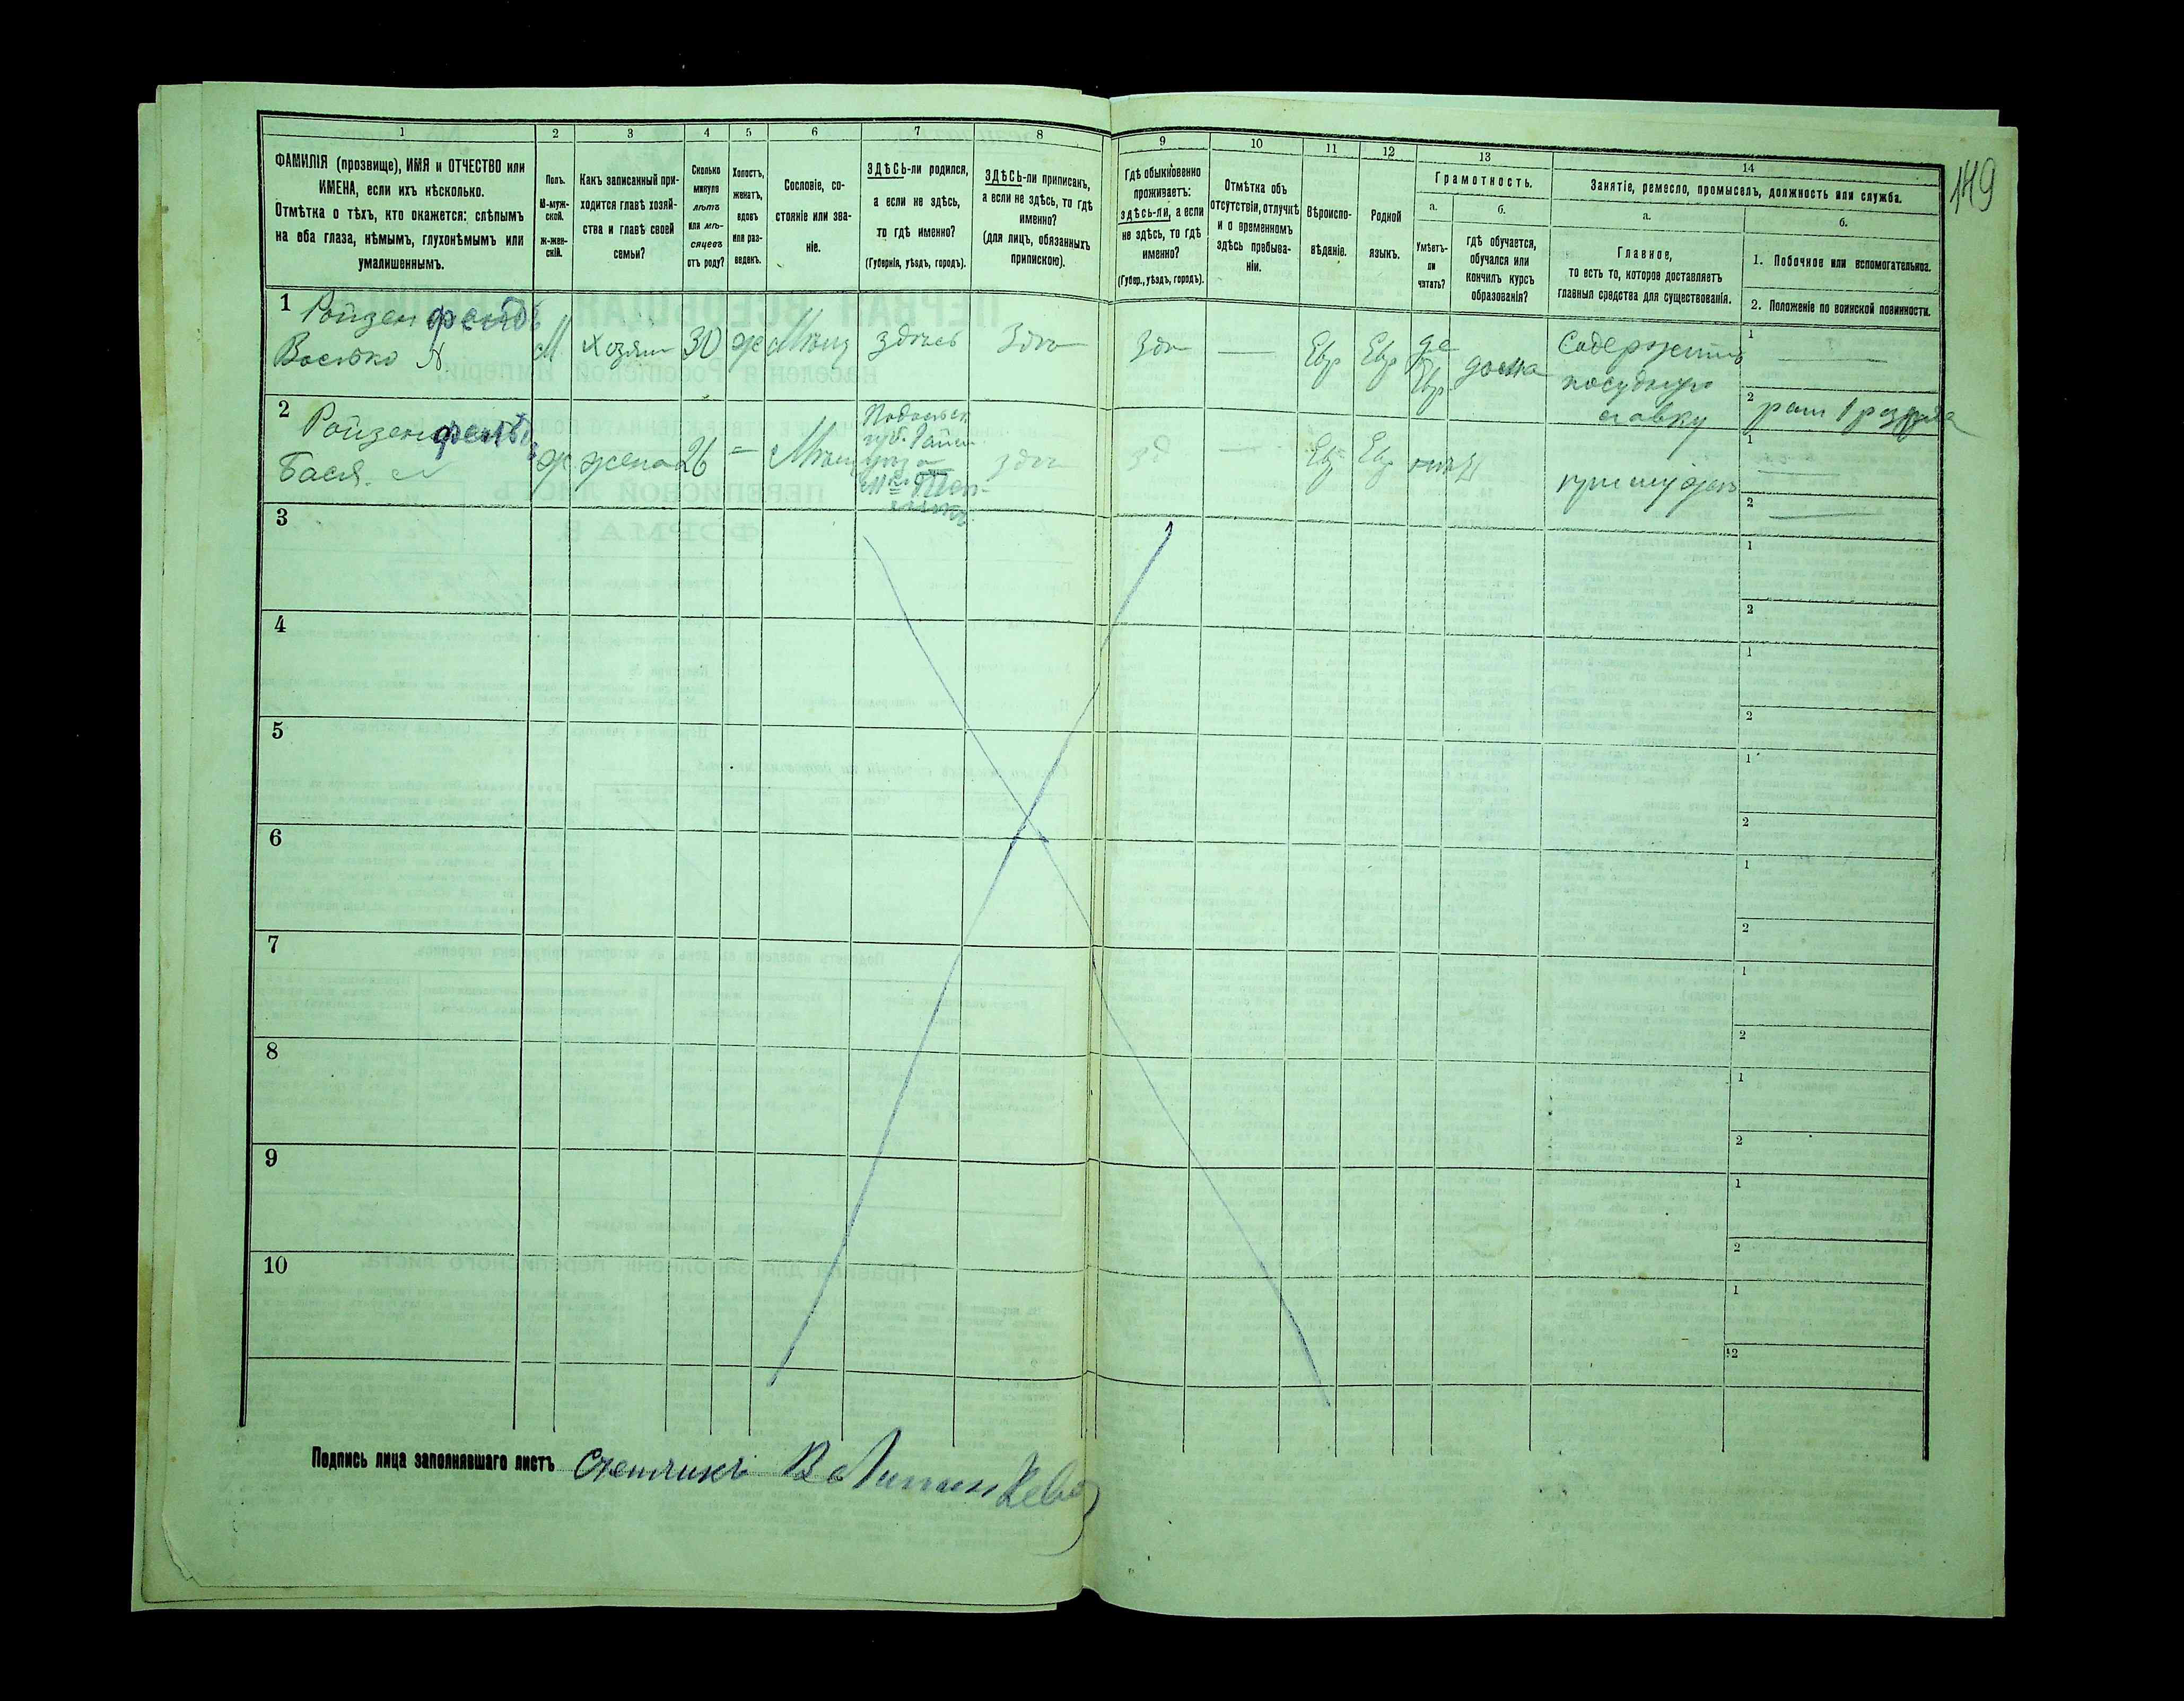 149
1
2
3
4
5
6
7
8
9
10
11
12
13
14
ФАМИЛІЯ (прозвище), ИМЯ и ОТЧЕСТВО или
ИМЕНА, если ихъ нѣсколько.
Отмѣтка о тѣхъ, кто окажется: слѣпымъ
на оба глаза, нѣмымъ, глухонѣмымъ или
умалишеннымъ.
Полъ.
М-муж-
ской.
ж-жен-
скій.
Какъ записанный при-
ходится главѣ хозяй-
ства и главѣ своей
семьи?
Сколько
минуло
лѣтъ
или мѣ-
сяцевъ
отъ роду?
Холостъ,
женатъ,
вдовъ
или раз-
веденъ.
Сословіе, со-
стояніе или зва-
ніе.
ЗДѢСЬ-ли родился,
а если не здѣсь,
то гдѣ именно?
(Губернія, уѣздъ, городъ).
ЗДѢСЬ-ли приписанъ,
а если не здѣсь, то гдѣ
именно?
(для лицъ, обязанныхъ
припискою).
Гдѣ обыкновенно
проживаетъ:
здѣсь-ли, а если
не здѣсь, то гдѣ
именно?
(Губер., уѣздъ, городъ).
Отмѣтка объ
отсутствіи, отлучкѣ
и о временномъ
здѣсь пребыва-
ніи.
Вѣроиспо-
вѣданіе.
Родной
языкъ.
Грамотность.
а.
Умѣетъ-
ли
читать?
б.
гдѣ обучается,
обучался или
кончилъ курсъ
образованія?
Занятіе, ремесло, промыселъ, должность или служба.
а.
Главное,
то есть то, которое доставляетъ
главныя средства для существованія.
б.
1. Побочное или вспомогательное.
2. Положеніе по воинской повинности.
1
Ройзенфельдъ
М
хозяин
30
ж
здѣсь
Евр
Евр
да
Евр
дома
Содержитъ
посудную
лавку
1
2
2
Ройзенфельдъ
Бася
ж
жена
26
Подольск
губ.
Евр
Евр
при мужѣ
1
2
3
1
2
4
1
2
5
1
2
6
1
2
7
1
2
8
1
2
9
1
2
10
1
2
Подпись лица заполнявшаго листъ Счетчикъ